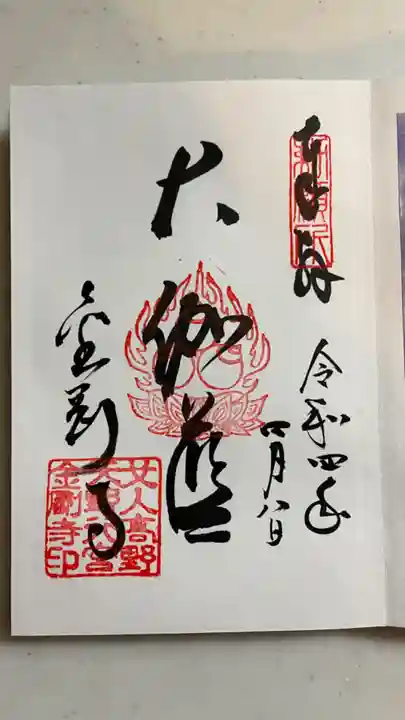 奉拝
令和四年
四月八日
大伽藍
金剛寺
女人高野
金剛寺印